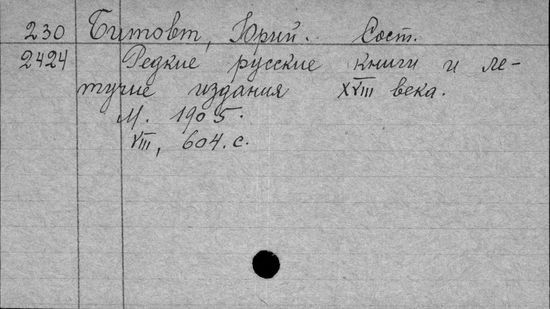 230 Битовт, Юрий. Сост.
2424 Редкие русские книги и ле-
тучие издания XVIII века.
М. 1905.
VIII, 604.с.